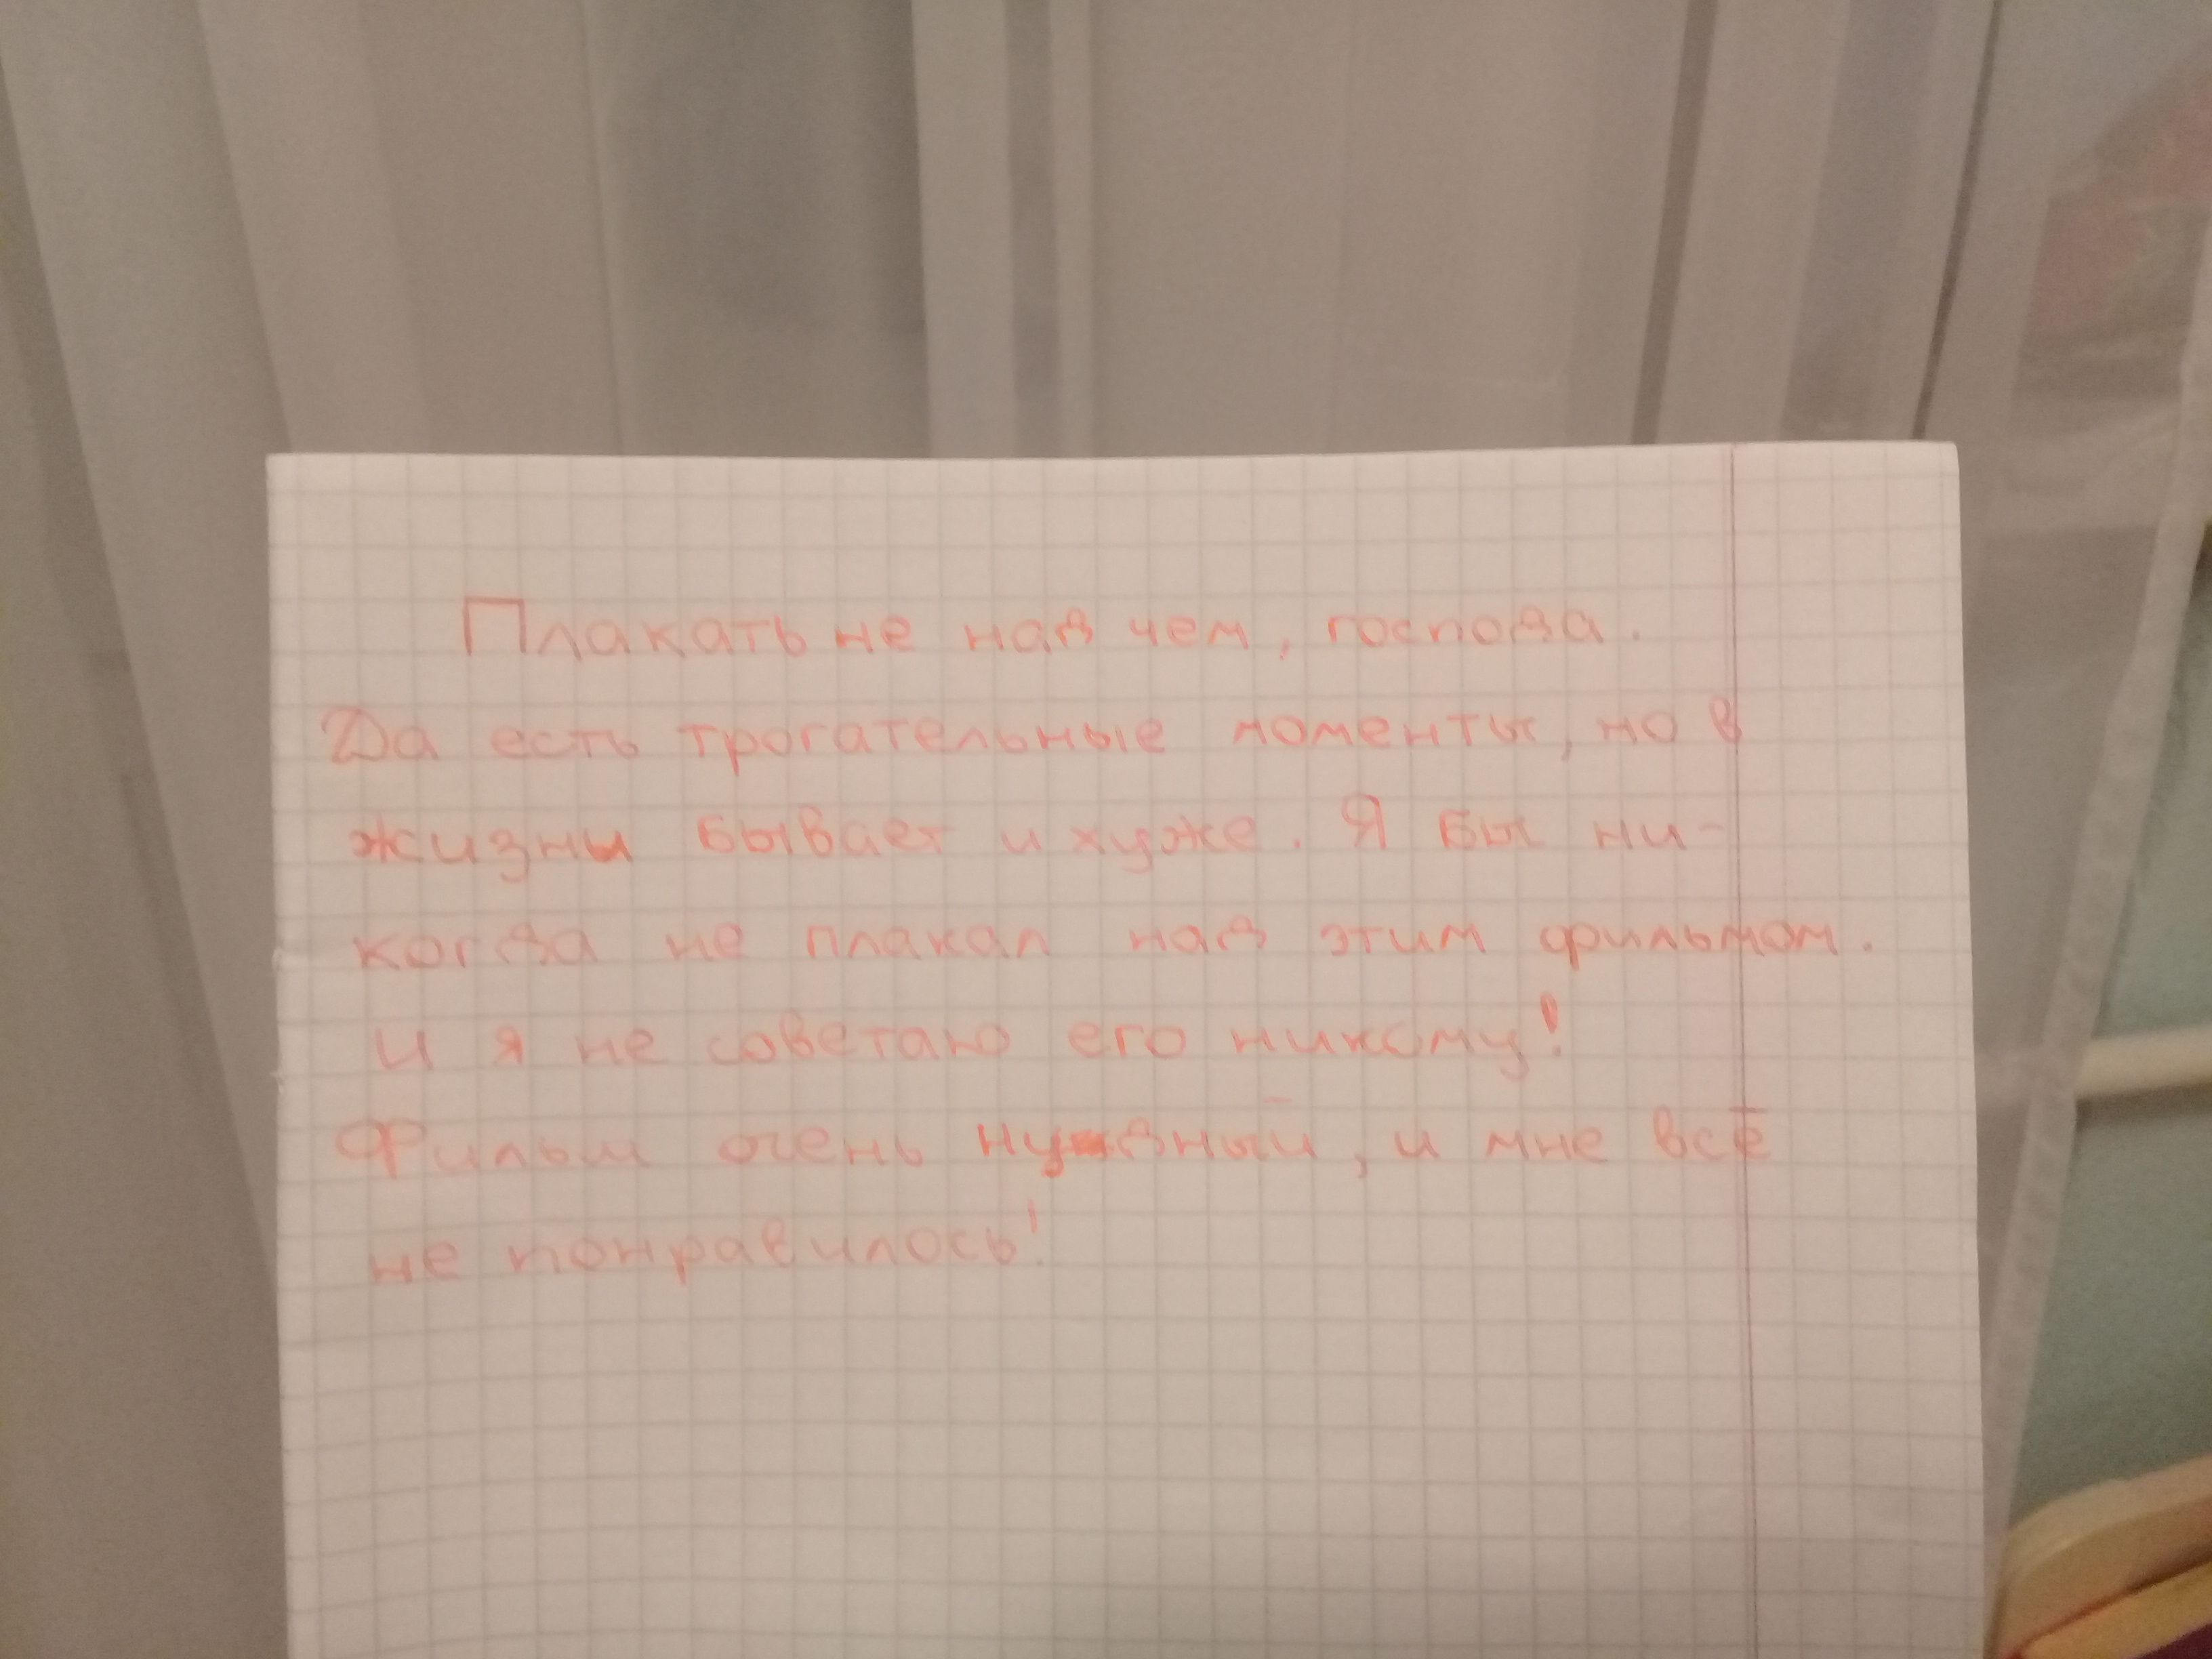 Плакать не над чем, господа.
Да есть трогательные моменты, но в
жизни бывает и хуже. Я бы ни-
когда не плакал над этим фильмом.
и я не советаю его никому!
Фильм очень нудный, и мне всё
не понравилось!